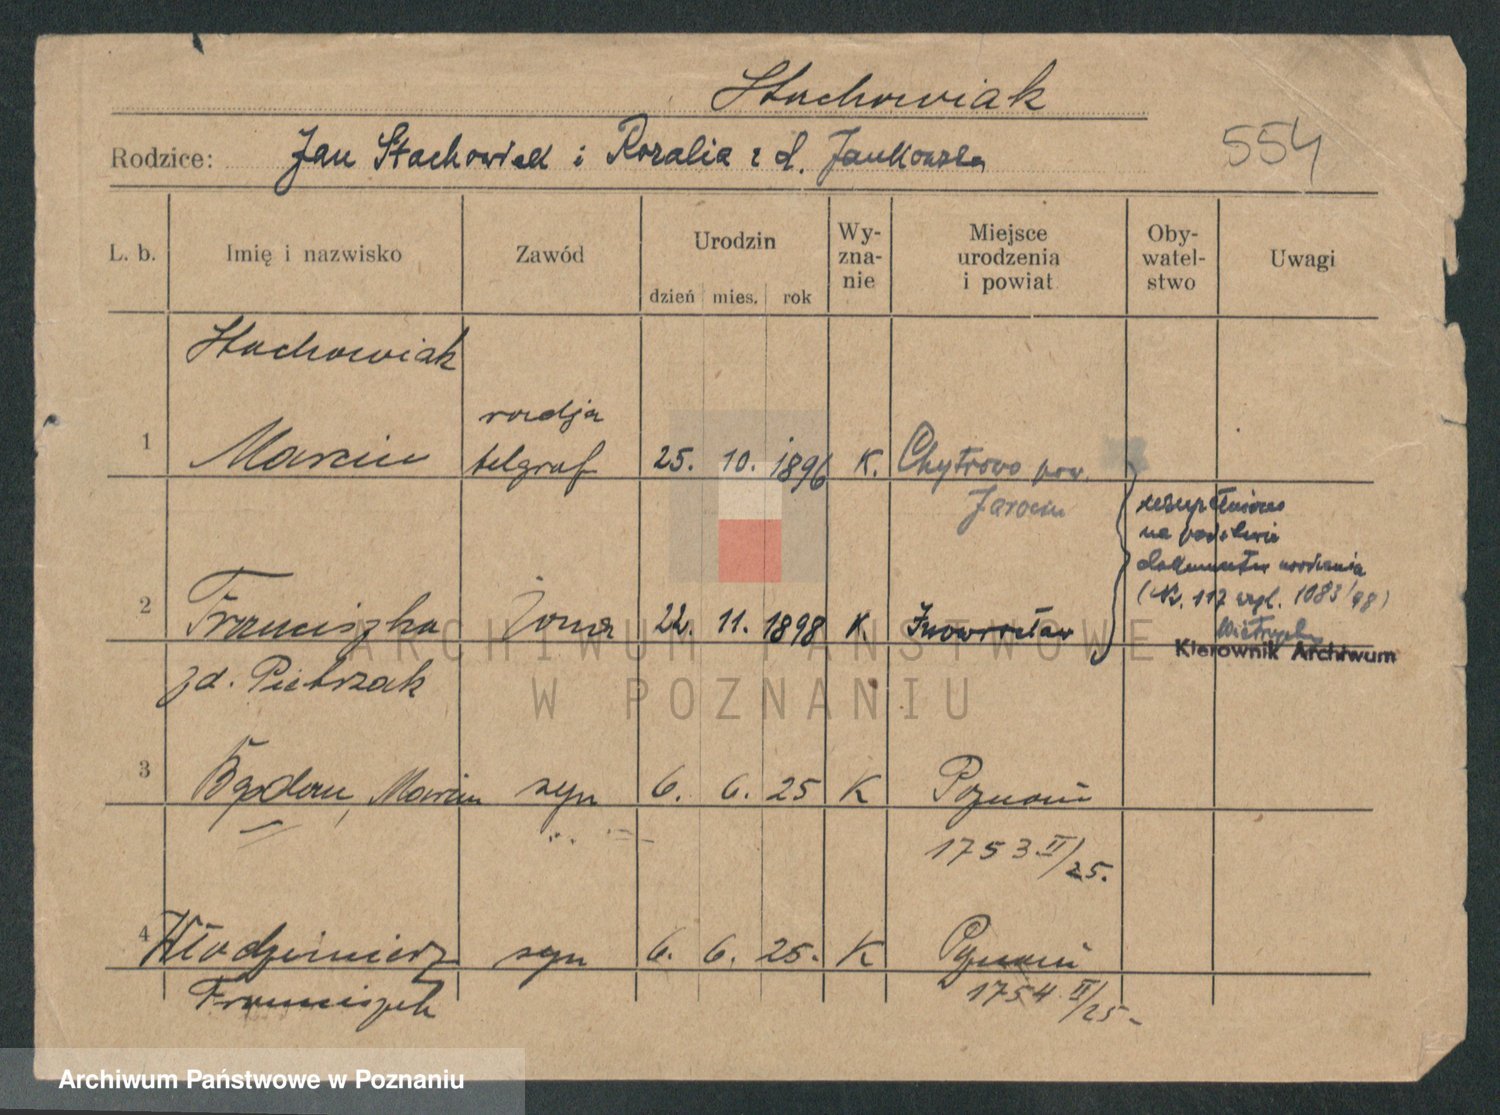 Stachowiak
Rodzice: Jan Stachowiak i Rozalia z d. Jankowska
554
L. b. Imię i nazwisko Zawód Urodzin dzień mies. rok Wy-zna-nie Miejsce urodzenia i powiat Oby-watel-stwo Uwagi
Stachowiak
1 Marcin telgraf 25. 10. 1896 K. Chytrowo pow.
Jarocin
uzupełniono
na podstawie
dokumentu urodzenia
(Nr. 117 wyl. 1083/48)
2 Franciszka żona 22. 11. 1898 K. Inowrocław
Kierownik Archiwum
zd. Pietrzak
3 Bogdan, Marcin syn 6. 6. 25 K Poznań
1753 II/25.
4 Włodzimierz syn 6. 6. 25. K Poznań
Franciszek 1754 II/25.
ARCHIWUM PAŃSTWOWE
W POZNANIU
Archiwum Państwowe w Poznaniu